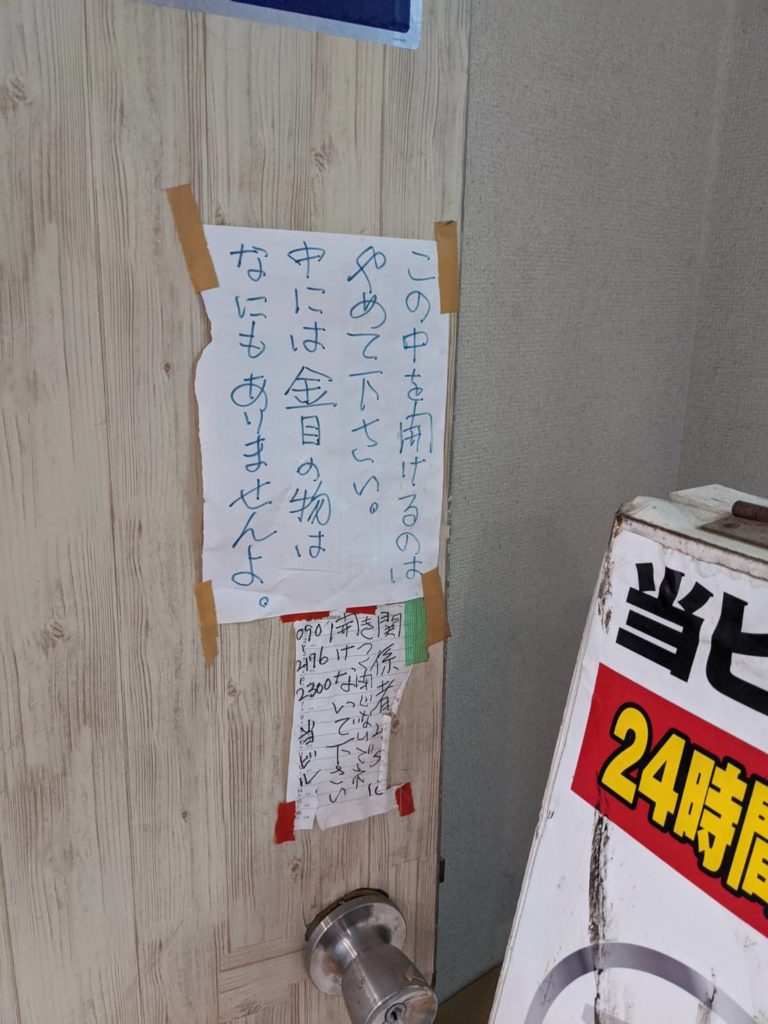 この中を開けるのは
やめて下さい。
中には金目の物は
なにもありませんよ。
関係者
きつく閉じないでネ
開けないで下さい
090
2300 当ビル
当ビ
24時間